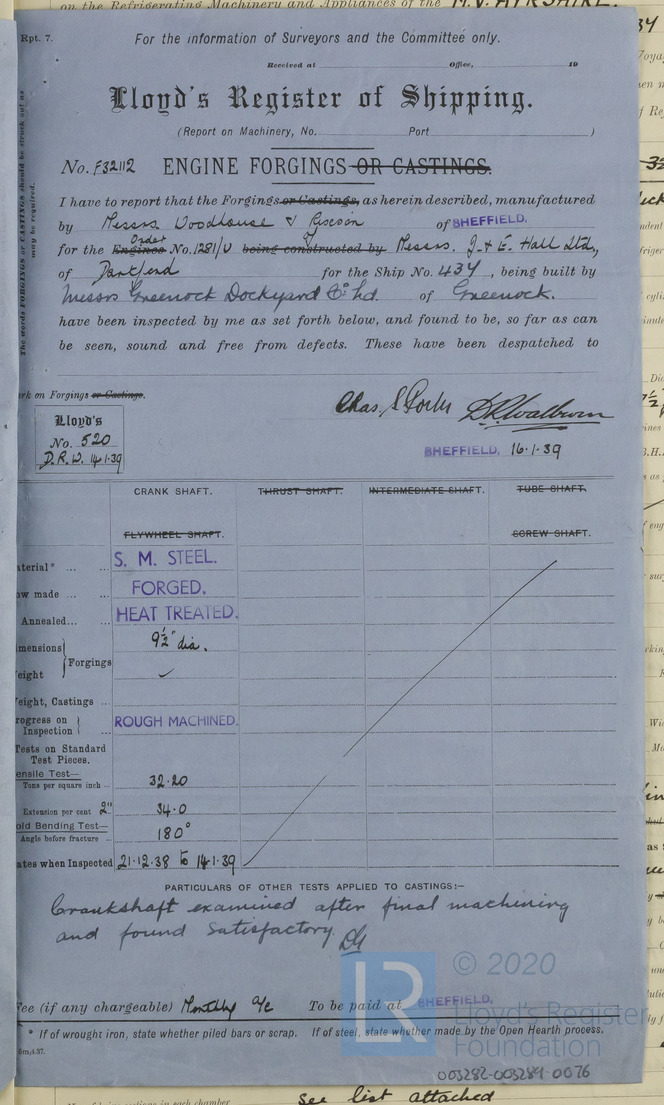 on the Refrigerating Machinery and Appliances of the M.V. AYRSHIRE.
Rpt. 7.
For the information of Surveyors and the Committee only.
Received at Office, 19
Lloyd's Register of Shipping.
(Report on Machinery, No. Port )
No. F32112 ENGINE FORGINGS OR CASTINGS.
The words FORGINGS or CASTINGS should be struck out as
may be required.
I have to report that the Forgings or Castings, as herein described, manufactured
by Messrs Woodhouse & Rixson of SHEFFIELD.
for the Engines Order No. 1281/U being constructed by of Messrs. J. & E. Hall Ltd,
of Dartford for the Ship No. 434, being built by
Messrs Greenock Dockyard Co Ld. of Greenock.
have been inspected by me as set forth below, and found to be, so far as can
be seen, sound and free from defects. These have been despatched to
rk on Forgings or Castings.
Lloyd's
No. 520
D.R.W. 14.1.39
Chas. S D.R. Walburn
SHEFFIELD, 16.1.39
CRANK SHAFT. THRUST SHAFT. INTERMEDIATE SHAFT. TUBE SHAFT.
FLYWHEEL SHAFT. SCREW SHAFT.
aterial* ... ... S. M. STEEL.
ow made ... ... FORGED.
Annealed... ... HEAT TREATED.
imensions } Forgings 9½" dia.
eight
eight, Castings ...
rogress on Inspection } ROUGH MACHINED.
Tests on Standard
Test Pieces.
ensile Test—
Tons per square inch 32.20
Extension per cent 2" 34.0
old Bending Test—
Angle before fracture 180°
ates when Inspected 21.12.38 to 14.1.39
PARTICULARS OF OTHER TESTS APPLIED TO CASTINGS:—
Crankshaft examined after final machining
and found satisfactory.
Fee (if any chargeable) Monthly a/c To be paid at SHEFFIELD.
* If of wrought iron, state whether piled bars or scrap. If of steel, state whether made by the Open Hearth process.
5m,4.37.
LR
© 2020
Lloyd's Register
Foundation
003282-003289-0076
See list attached